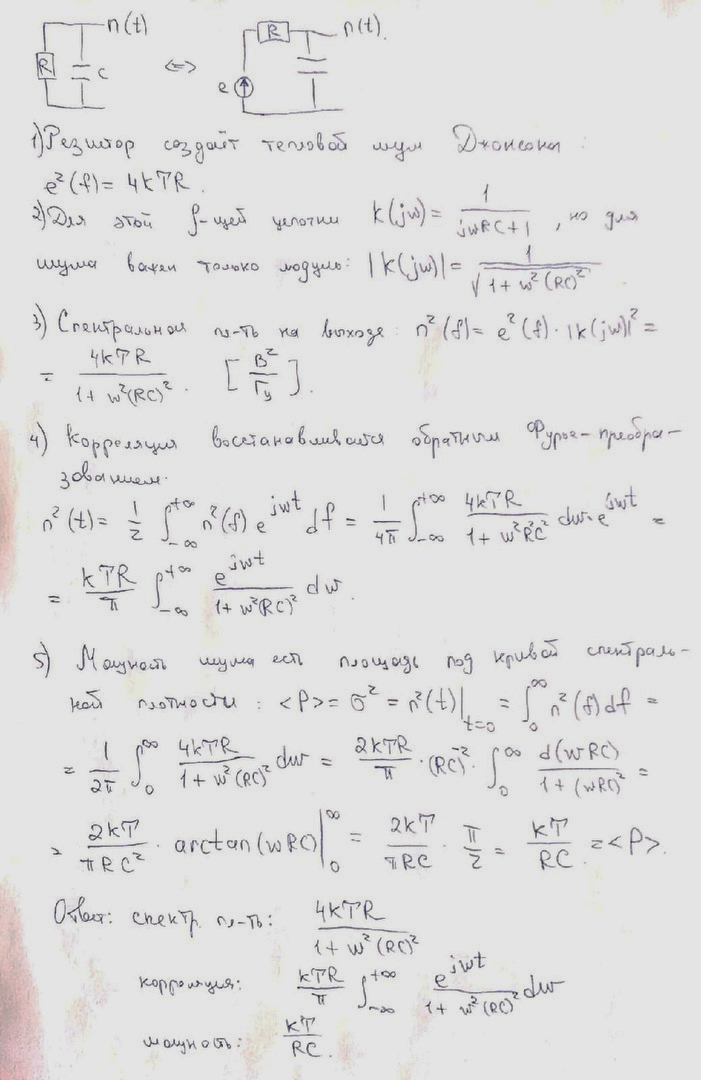 n(t) n(t).
R C <=> R e
1) Резистор создаёт тепловой шум Джонсона:
e²(f) = 4kTR.
2) Для этой f-щей цепочки K(jw) = 1/(jwRC+1), но для
шума важен только модуль: |K(jw)| = 1/√(1+w²(RC)²)
3) Спектральной пл-ть на выходе: n²(f) = e²(f)·|K(jw)|² =
= 4kTR/(1+w²(RC)²). [В²/Гц].
4) Корреляция восстанавливается обратным Фурье-преобра-
зованием.
n²(t) = 1/2 ∫_{-∞}^{+∞} n²(f) e^{jwt} df = 1/4π ∫_{-∞}^{+∞} 4kTR/(1+w²R²C²) dw·e^{jwt} =
= kTR/π ∫_{-∞}^{+∞} e^{jwt}/(1+w²(RC)²) dw.
5) Мощность шума есть площадь под кривой спектраль-
ной плотности: <P> = σ² = n²(t)|_{t=0} = ∫_0^∞ n²(f)df =
= 1/2π ∫_0^∞ 4kTR/(1+w²(RC)²) dw = 2kTR/π · (RC)^{-2} · ∫_0^∞ d(wRC)/(1+(wRC)²) =
= 2kT/πRC² · arctan(wRC)|_0^∞ = 2kT/πRC · π/2 = kT/RC = <P>.
Ответ: спектр. пл-ть: 4kTR/(1+w²(RC)²)
корреляция: kTR/π ∫_{-∞}^{+∞} e^{jwt}/(1+w²(RC)²) dw
мощность: kT/RC.